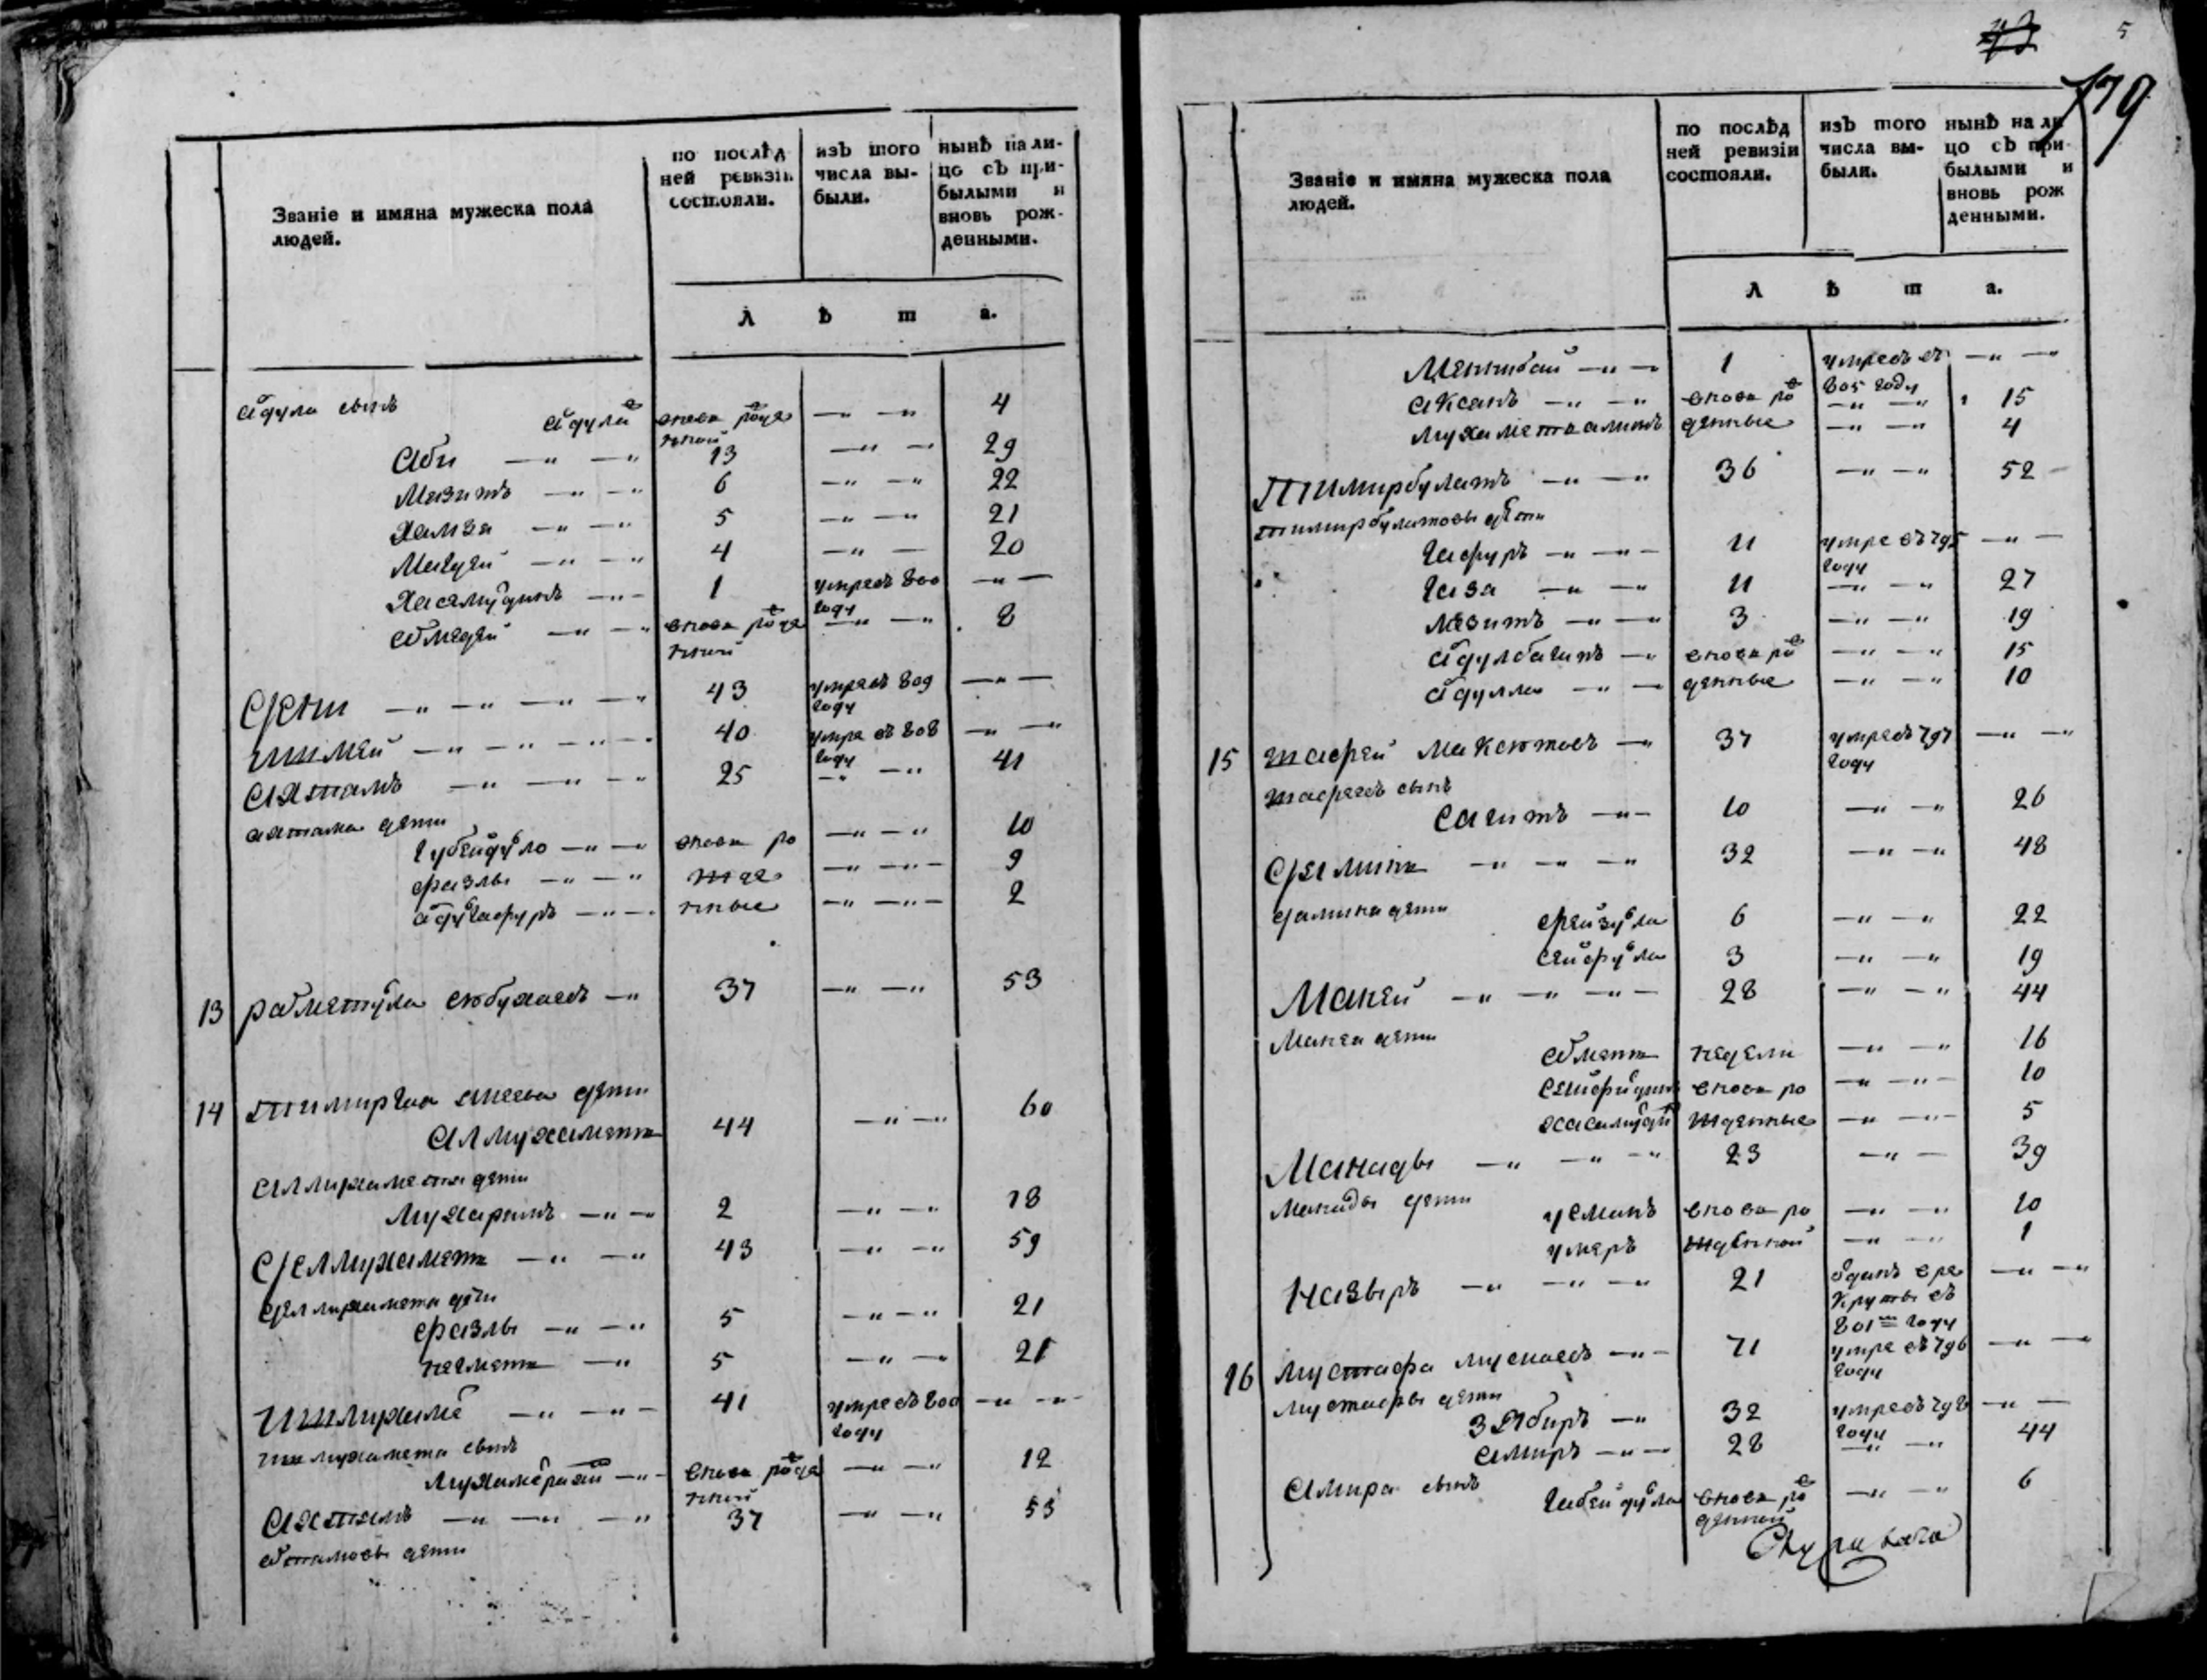 Званіе и имяна мужеска пола
людей.
по послѣд
ней ревизіи
состояли.
изъ того
числа вы-
были.
нынѣ на ли-
цо съ при-
былыми и
вновь рож-
денными.
л ѣ т а.
абдула сынъ
абдулве вновь рожде — — 4
нной
Аби — — 13 — — 29
Мазитъ — — 6 — — 22
Хамза — — 5 — — 21
Магдей — — 4 — — 20
Хасямудинъ — — 1 умре въ 800 — —
году
Ахмедей — — вновь рожде — — 8
нной
43 умре въ 809 — —
году
Ишмей — — — — 40 умре въ 808 — —
году
Ахтамъ — — — 25 — — 41
ахтама дети
Губейдуло — — вновь ро — — 10
фазлы — — жде — — 9
абдулгафуръ — — нные — — 2
13 рахметула — 37 — — 53
14 дети
Алмухаметъ 44 — — 60
алмухаметя дети
Мухаринъ — — 2 — — 18
Селмухаметъ — — 43 — — 59
селмухамета дети
фазлы — — 5 — — 21
негметъ — 5 — — 21
Ишмухаме — — 41 умре въ 800 — —
году
ишмухамета сынъ
— — вновь рожде — — 12
нной
Ахтямъ — — — 37 — — 53
ахтямовы дети
43
5
179
Званіе и имяна мужеска пола
людей.
по послѣд
ней ревизіи
состояли.
изъ того
числа вы-
были.
нынѣ на ли
цо съ при-
былыми и
вновь рож
денными.
л ѣ т а.
Менлибай — — 1 умре въ — —
805 году
Аксанъ — — вновь рож — — 15
Мухаметкаминъ денные — — 4
Тимирбулатъ — — 36 — — 52
тимирбулатовы дѣти
Гафуръ — — 11 умре въ 795 — —
году
Газа — — 11 — — 27
Мазитъ — — 3 — — 19
абдулвагипъ — вновь рож — — 15
абдулла — — денные — — 10
15 Тафей Максютовъ — 37 умре въ 797 — —
году
Тафеевъ сынъ
Сагитъ — — 10 — — 26
— — — 32 — — 48
дети фейзула 6 — — 22
сейфула 3 — — 19
Маней — — — — 28 — — 44
Манея дети
Ахметъ недели — — 16
Сейфидинъ вновь ро — — 10
жденные — — 5
Манады — — — 23 — — 39
Манады дети
усманъ вновь ро — — 10
умеръ жденной — — 1
Назыръ — — — 21 отданъ в ре — —
круты въ
801м году
16 Мустафа мусиевъ — — 71 умре въ 796 — —
году
мустафы дети
Зябиръ — 32 умре въ 798 — —
году
Амиръ — — 28 — — 44
Амира сынъ
Габейдула вновь рож — — 6
денной